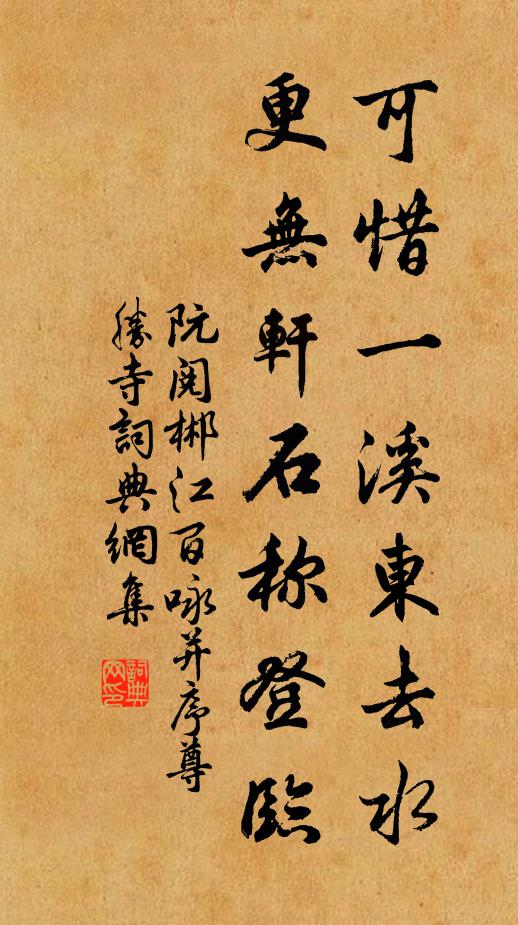 可惜一溪東去水
更無軒石称登臨
阮閱郴江百咏并序尊
勝寺詞典網集
詞典
网印